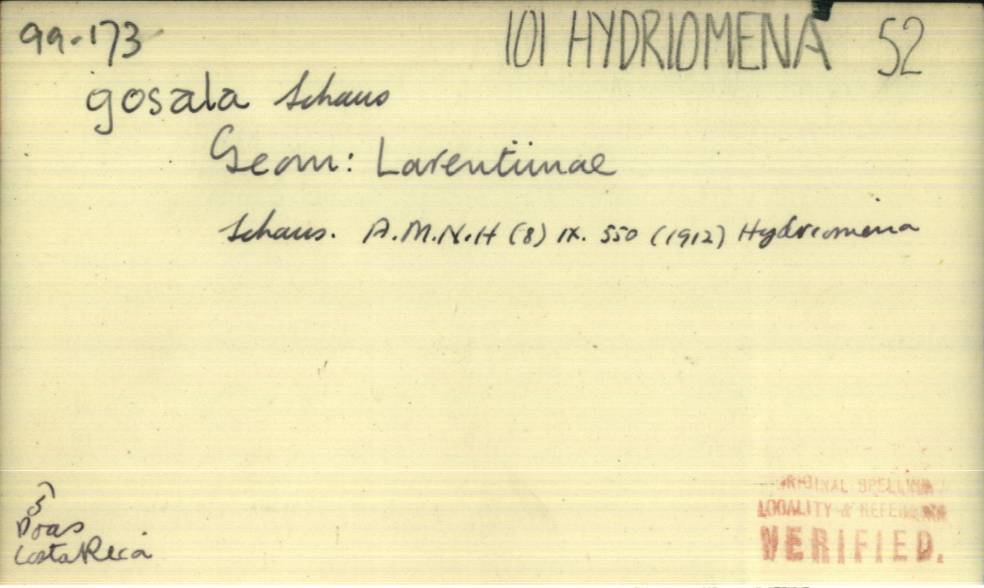 99.173
101 HYDRIOMENA 52
gosala Schaus
Geom: Larentiinae
Schaus. A.M.N.H (8) IX. 550 (1912) Hydriomena
Poas
Costa Rica
ORIGINAL SPELLING
LOCALITY & REFERENCE
VERIFIED.